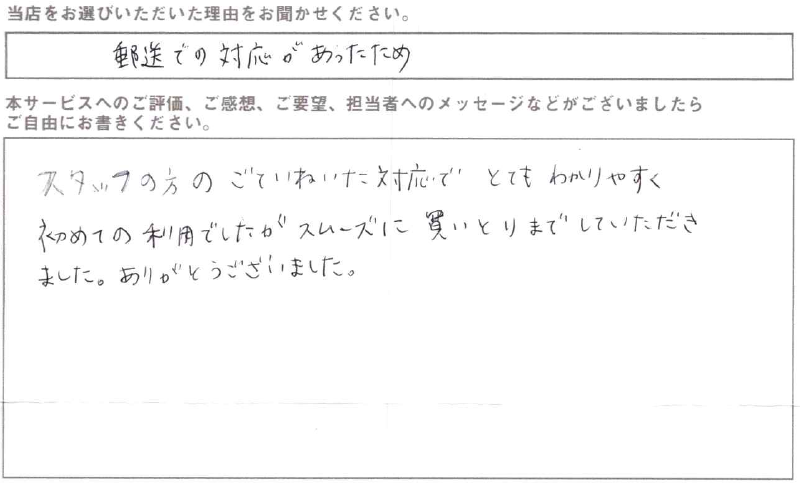 当店をお選びいただいた理由をお聞かせください。
郵送での対応があったため
本サービスへのご評価、ご感想、ご要望、担当者へのメッセージなどがございましたら
ご自由にお書きください。
スタッフの方のごていねいな対応で とてもわかりやすく
初めての利用でしたがスムーズに買いとりまでしていただき
ました。ありがとうございました。